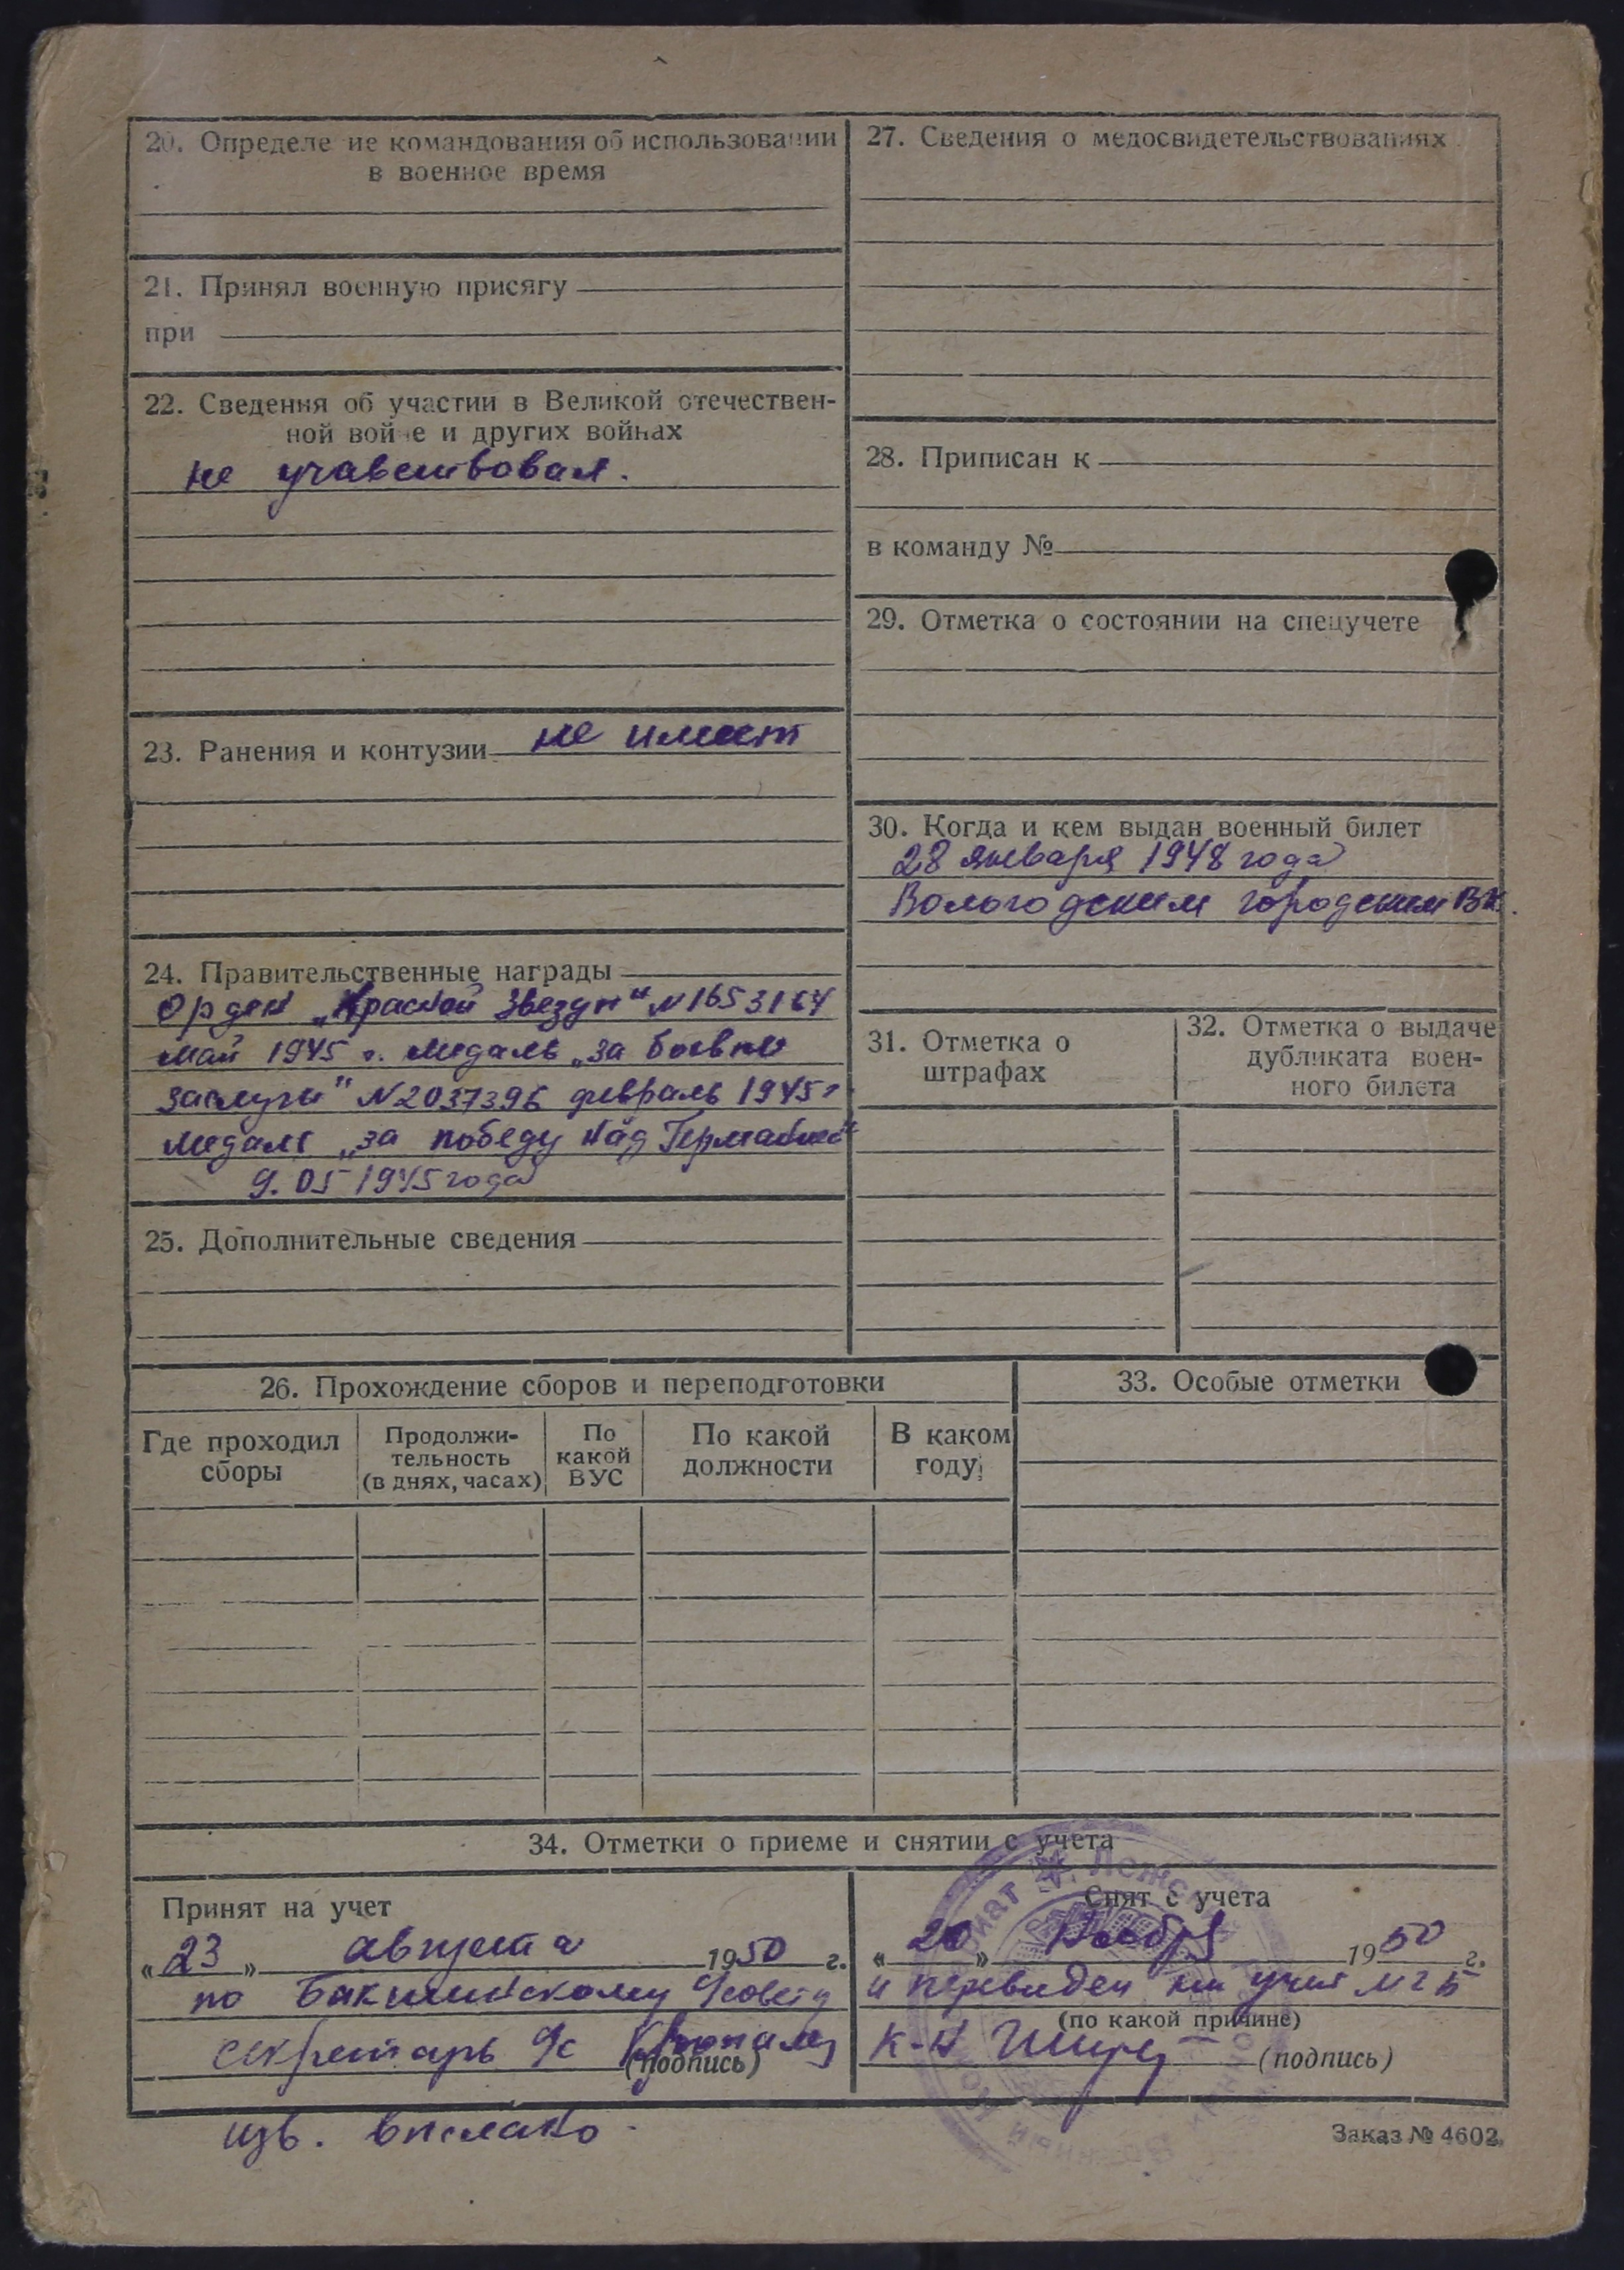 20. Определе ие командования об использовании
в военное время
21. Принял военную присягу
при
22. Сведения об участии в Великой отечествен-
ной вой е и других войнах
не учавствовал.
23. Ранения и контузии не имеет
24. Правительственные награды
Орден „Красной Звезды" № 1653164
май 1945 г. медаль „за боевые
заслуги" №2037396 февраль 1945г
медаль „за победу над Германией"
9.05 1945 года
25. Дополнительные сведения
27. Сведения о медосвидетельствованиях
28. Приписан к
в команду №
29. Отметка о состоянии на спецучете
30. Когда и кем выдан военный билет
28 января 1948 года
Вологодским городским ВК.
31. Отметка о
штрафах
32. Отметка о выдаче
дубликата воен-
ного билета
26. Прохождение сборов и переподготовки
Где проходил
сборы
Продолжи-
тельность
(в днях, часах)
По
какой
ВУС
По какой
должности
В каком
году
33. Особые отметки
34. Отметки о приеме и снятии с учета
Принят на учет
„23" августа 1950 г.
по с/совету
секретарь с/с
(подпись)
изв. выслано
Снят с учета
„20" Ноября 1950 г.
и переведен на учет МГБ
(по какой причине)
К-н
(подпись)
Заказ № 4602.